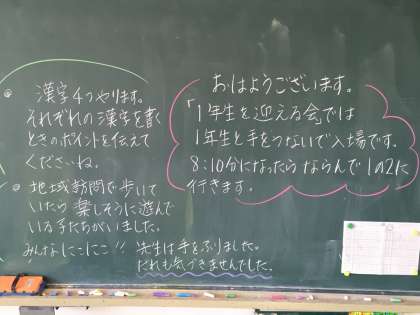 漢字4つやります。
それぞれの漢字を書く
ときのポイントを伝えて
くださいね。
地域訪問で歩いて
いたら楽しそうに遊んで
いる子たちがいました。
みんなにこにこ!! 先生は手をふりました。
だれも気づきませんでした。
おはようございます。
「1年生を迎える会」では
1年生と手をつないで入場です。
8:10分になったらならんで1の2に
行きます。